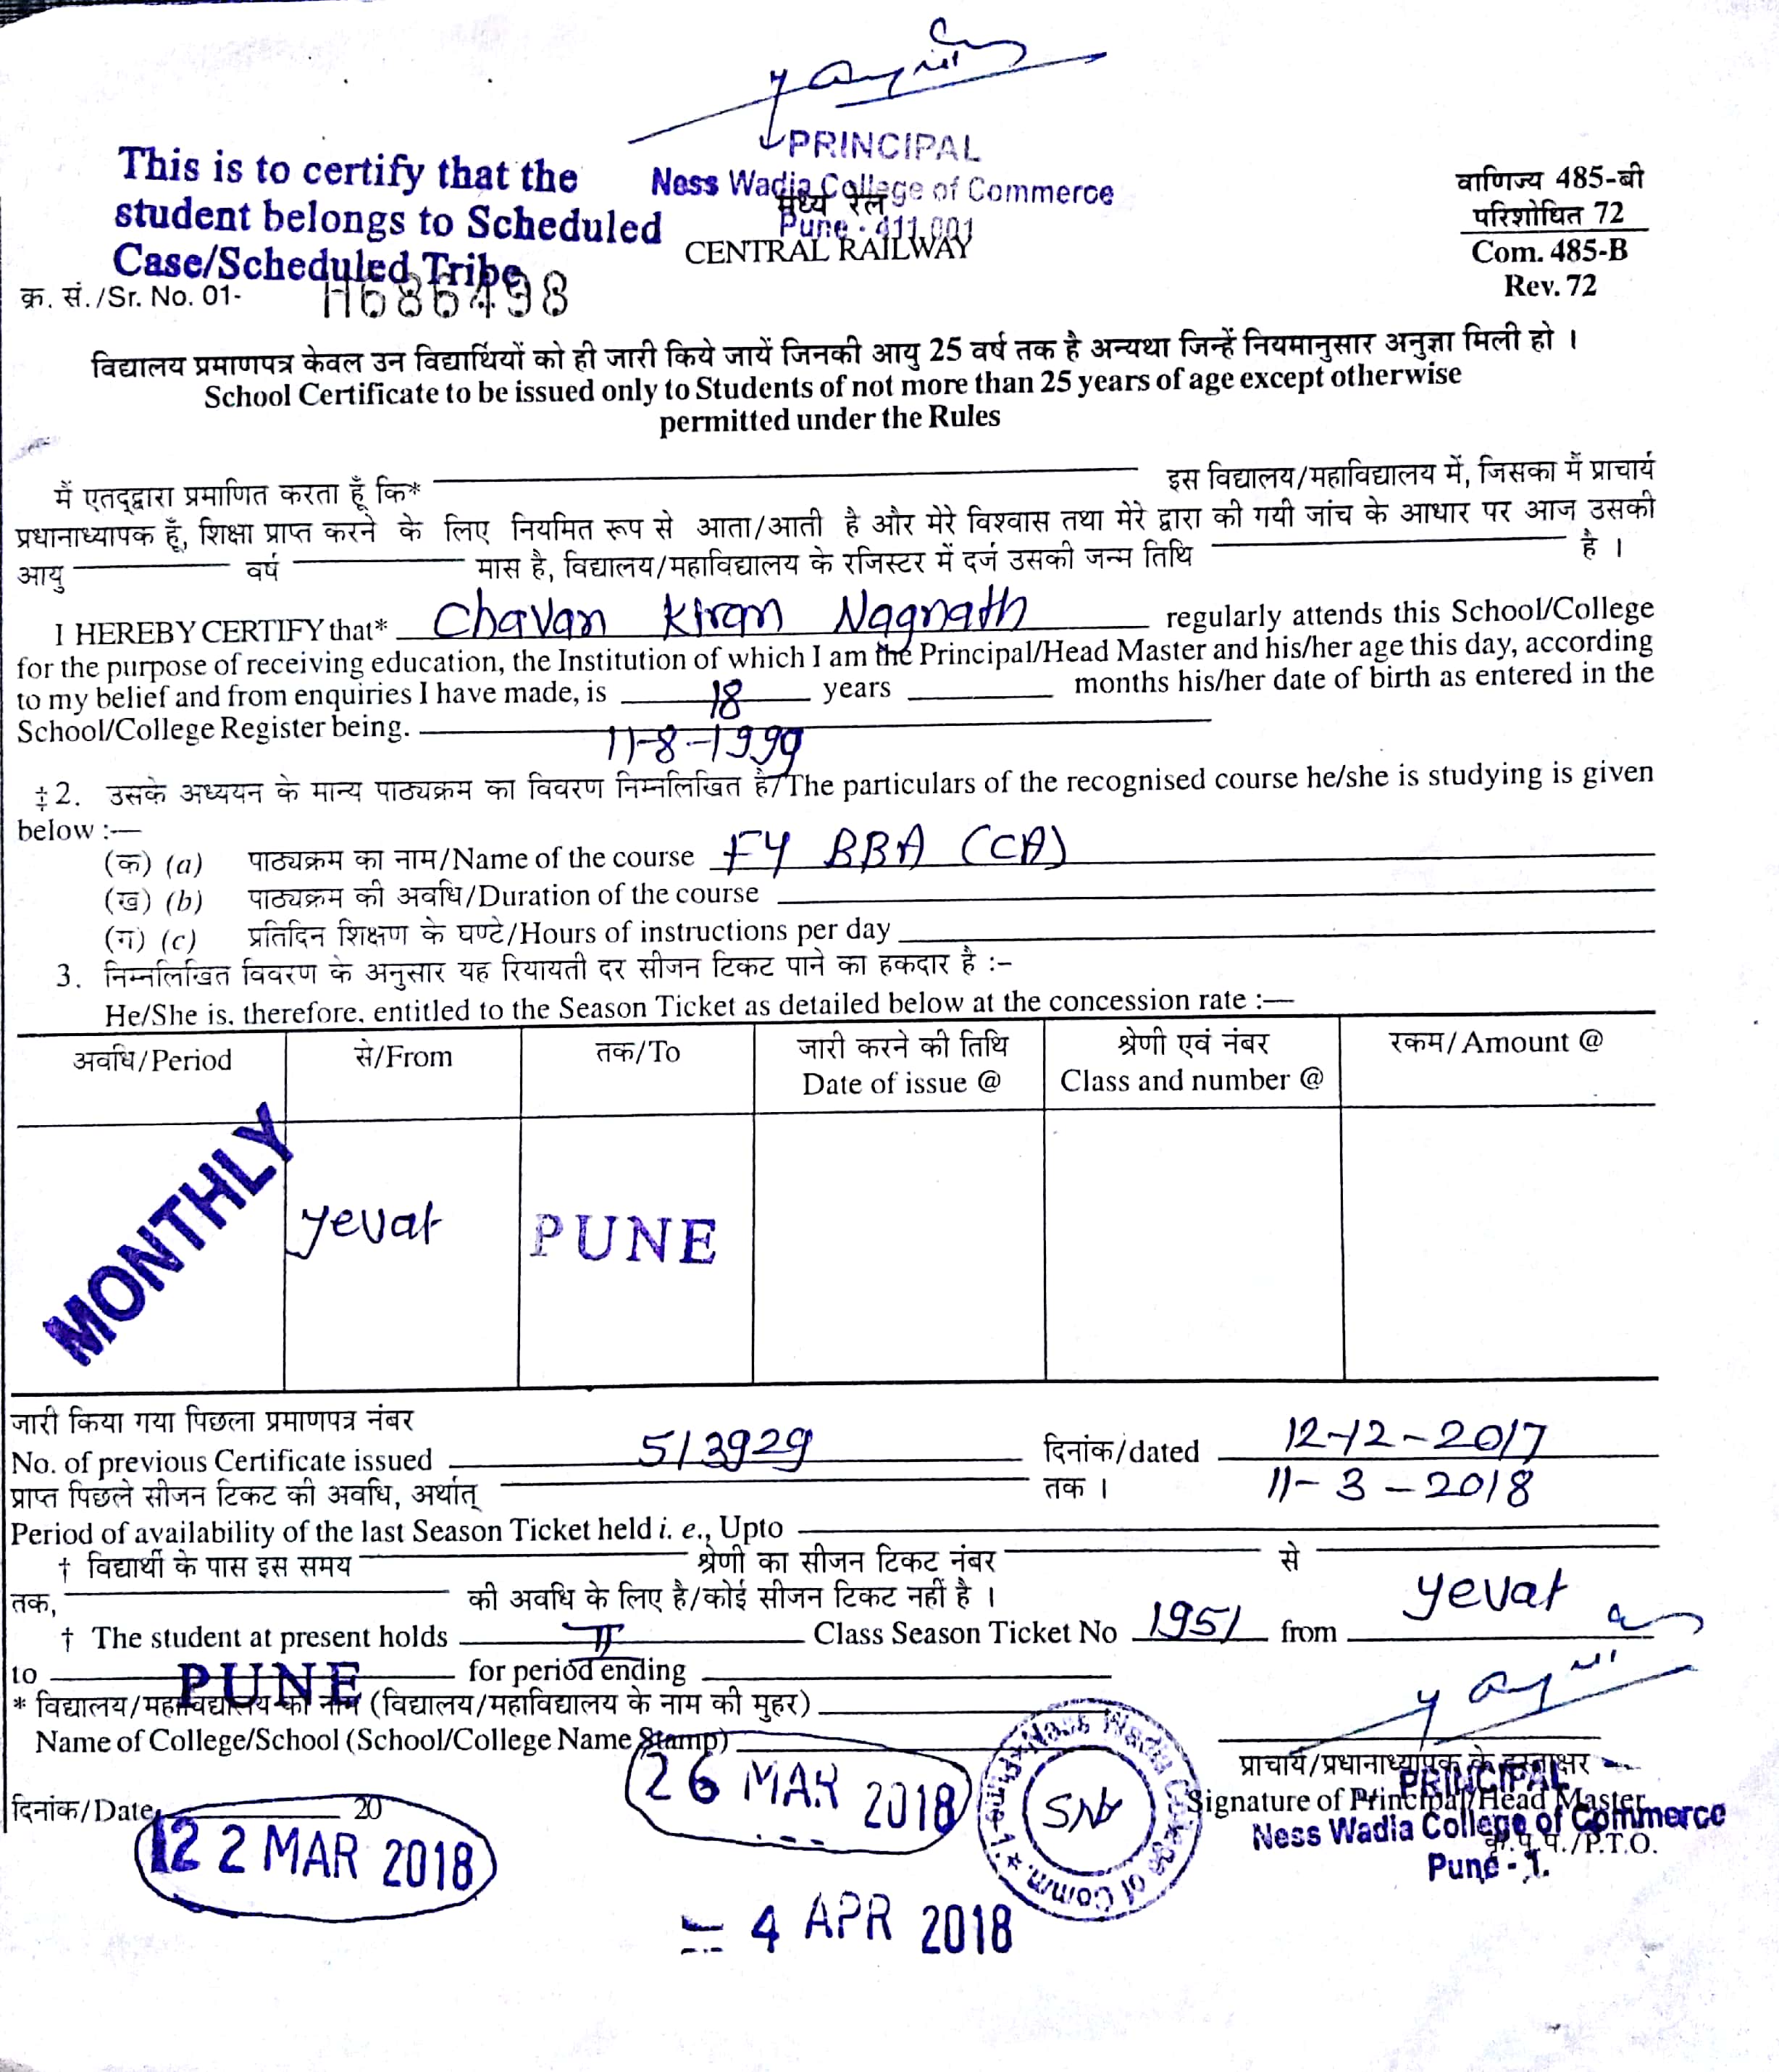 PRINCIPAL
Ness Wadia College of Commerce
Pune - 411 001
This is to certify that the
student belongs to Scheduled
Case/Scheduled Tribe
मध्य रेल
CENTRAL RAILWAY
वाणिज्य 485-बी
परिशोधित 72
Com. 485-B
Rev. 72
क्र. सं./Sr. No. 01- H686498
विद्यालय प्रमाणपत्र केवल उन विद्यार्थियों को ही जारी किये जायें जिनकी आयु 25 वर्ष तक है अन्यथा जिन्हें नियमानुसार अनुज्ञा मिली हो ।
School Certificate to be issued only to Students of not more than 25 years of age except otherwise
permitted under the Rules
मैं एतद्द्वारा प्रमाणित करता हूँ कि* इस विद्यालय/महाविद्यालय में, जिसका मैं प्राचार्य
प्रधानाध्यापक हूँ, शिक्षा प्राप्त करने के लिए नियमित रूप से आता/आती है और मेरे विश्वास तथा मेरे द्वारा की गयी जांच के आधार पर आज उसकी
आयु वर्ष मास है, विद्यालय/महाविद्यालय के रजिस्टर में दर्ज उसकी जन्म तिथि है ।
I HEREBY CERTIFY that* Chavan Kiran Nagnath regularly attends this School/College
for the purpose of receiving education, the Institution of which I am the Principal/Head Master and his/her age this day, according
to my belief and from enquiries I have made, is 18 years months his/her date of birth as entered in the
School/College Register being. 11-8-1999
‡2. उसके अध्ययन के मान्य पाठ्यक्रम का विवरण निम्नलिखित है/The particulars of the recognised course he/she is studying is given
below :—
(क) (a) पाठ्यक्रम का नाम/Name of the course FY BBA (CA)
(ख) (b) पाठ्यक्रम की अवधि/Duration of the course
(ग) (c) प्रतिदिन शिक्षण के घण्टे/Hours of instructions per day
3. निम्नलिखित विवरण के अनुसार यह रियायती दर सीजन टिकट पाने का हकदार है :-
He/She is, therefore, entitled to the Season Ticket as detailed below at the concession rate :—
अवधि/Period से/From तक/To जारी करने की तिथि श्रेणी एवं नंबर रकम/Amount @
Date of issue @ Class and number @
MONTHLY yevat PUNE
जारी किया गया पिछला प्रमाणपत्र नंबर
No. of previous Certificate issued 513929 दिनांक/dated 12-12-2017
प्राप्त पिछले सीजन टिकट की अवधि, अर्थात् तक । 11-3-2018
Period of availability of the last Season Ticket held i. e., Upto
† विद्यार्थी के पास इस समय श्रेणी का सीजन टिकट नंबर से
तक, की अवधि के लिए है/कोई सीजन टिकट नहीं है ।
† The student at present holds II Class Season Ticket No 1951 from yevat
to PUNE for period ending
* विद्यालय/महाविद्यालय का नाम (विद्यालय/महाविद्यालय के नाम की मुहर)
Name of College/School (School/College Name Stamp)
26 MAR 2018
Ness Wadia College of Comm. Pune-1.
प्राचार्य/प्रधानाध्यापक के हस्ताक्षर
दिनांक/Date 20
Signature of Principal/Head Master
PRINCIPAL
Ness Wadia College of Commerce
Pune - 1.
कृ.पृ.प./P.T.O.
22 MAR 2018
- 4 APR 2018